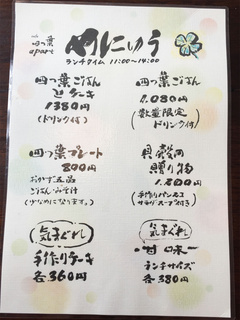 四つ葉
apart
めにゅう
ランチタイム 11:00〜14:00
四つ葉ごはん
とケーキ
1380円
(ドリンク付)
四つ葉ごはん
1,080円
(数量限定
ドリンク付)
四つ葉プレート
800円
おかず五品
ごはん・みそ汁
(少なめになります。)
貝殻の
贈り物
1,800円
(手作りパンニコ
サラダ・スープ付き)
気まぐれ
手作りケーキ
各360円
気まぐれ
甘味
ランチサイズ
各380円